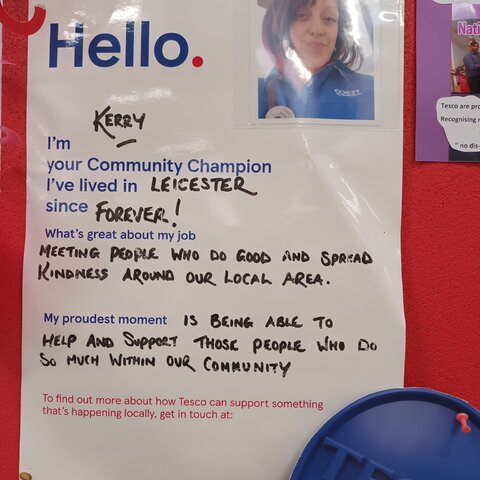 Hello.
KERRY
I'm
your Community Champion
I've lived in LEICESTER
since FOREVER!
What's great about my job
MEETING PEOPLE WHO DO GOOD AND SPREAD
KINDNESS AROUND OUR LOCAL AREA.
My proudest moment IS BEING ABLE TO
HELP AND SUPPORT THOSE PEOPLE WHO DO
SO MUCH WITHIN OUR COMMUNITY
To find out more about how Tesco can support something
that's happening locally, get in touch at:
TESCO
Nati
Tesco are pro
Recognising
" no dis-